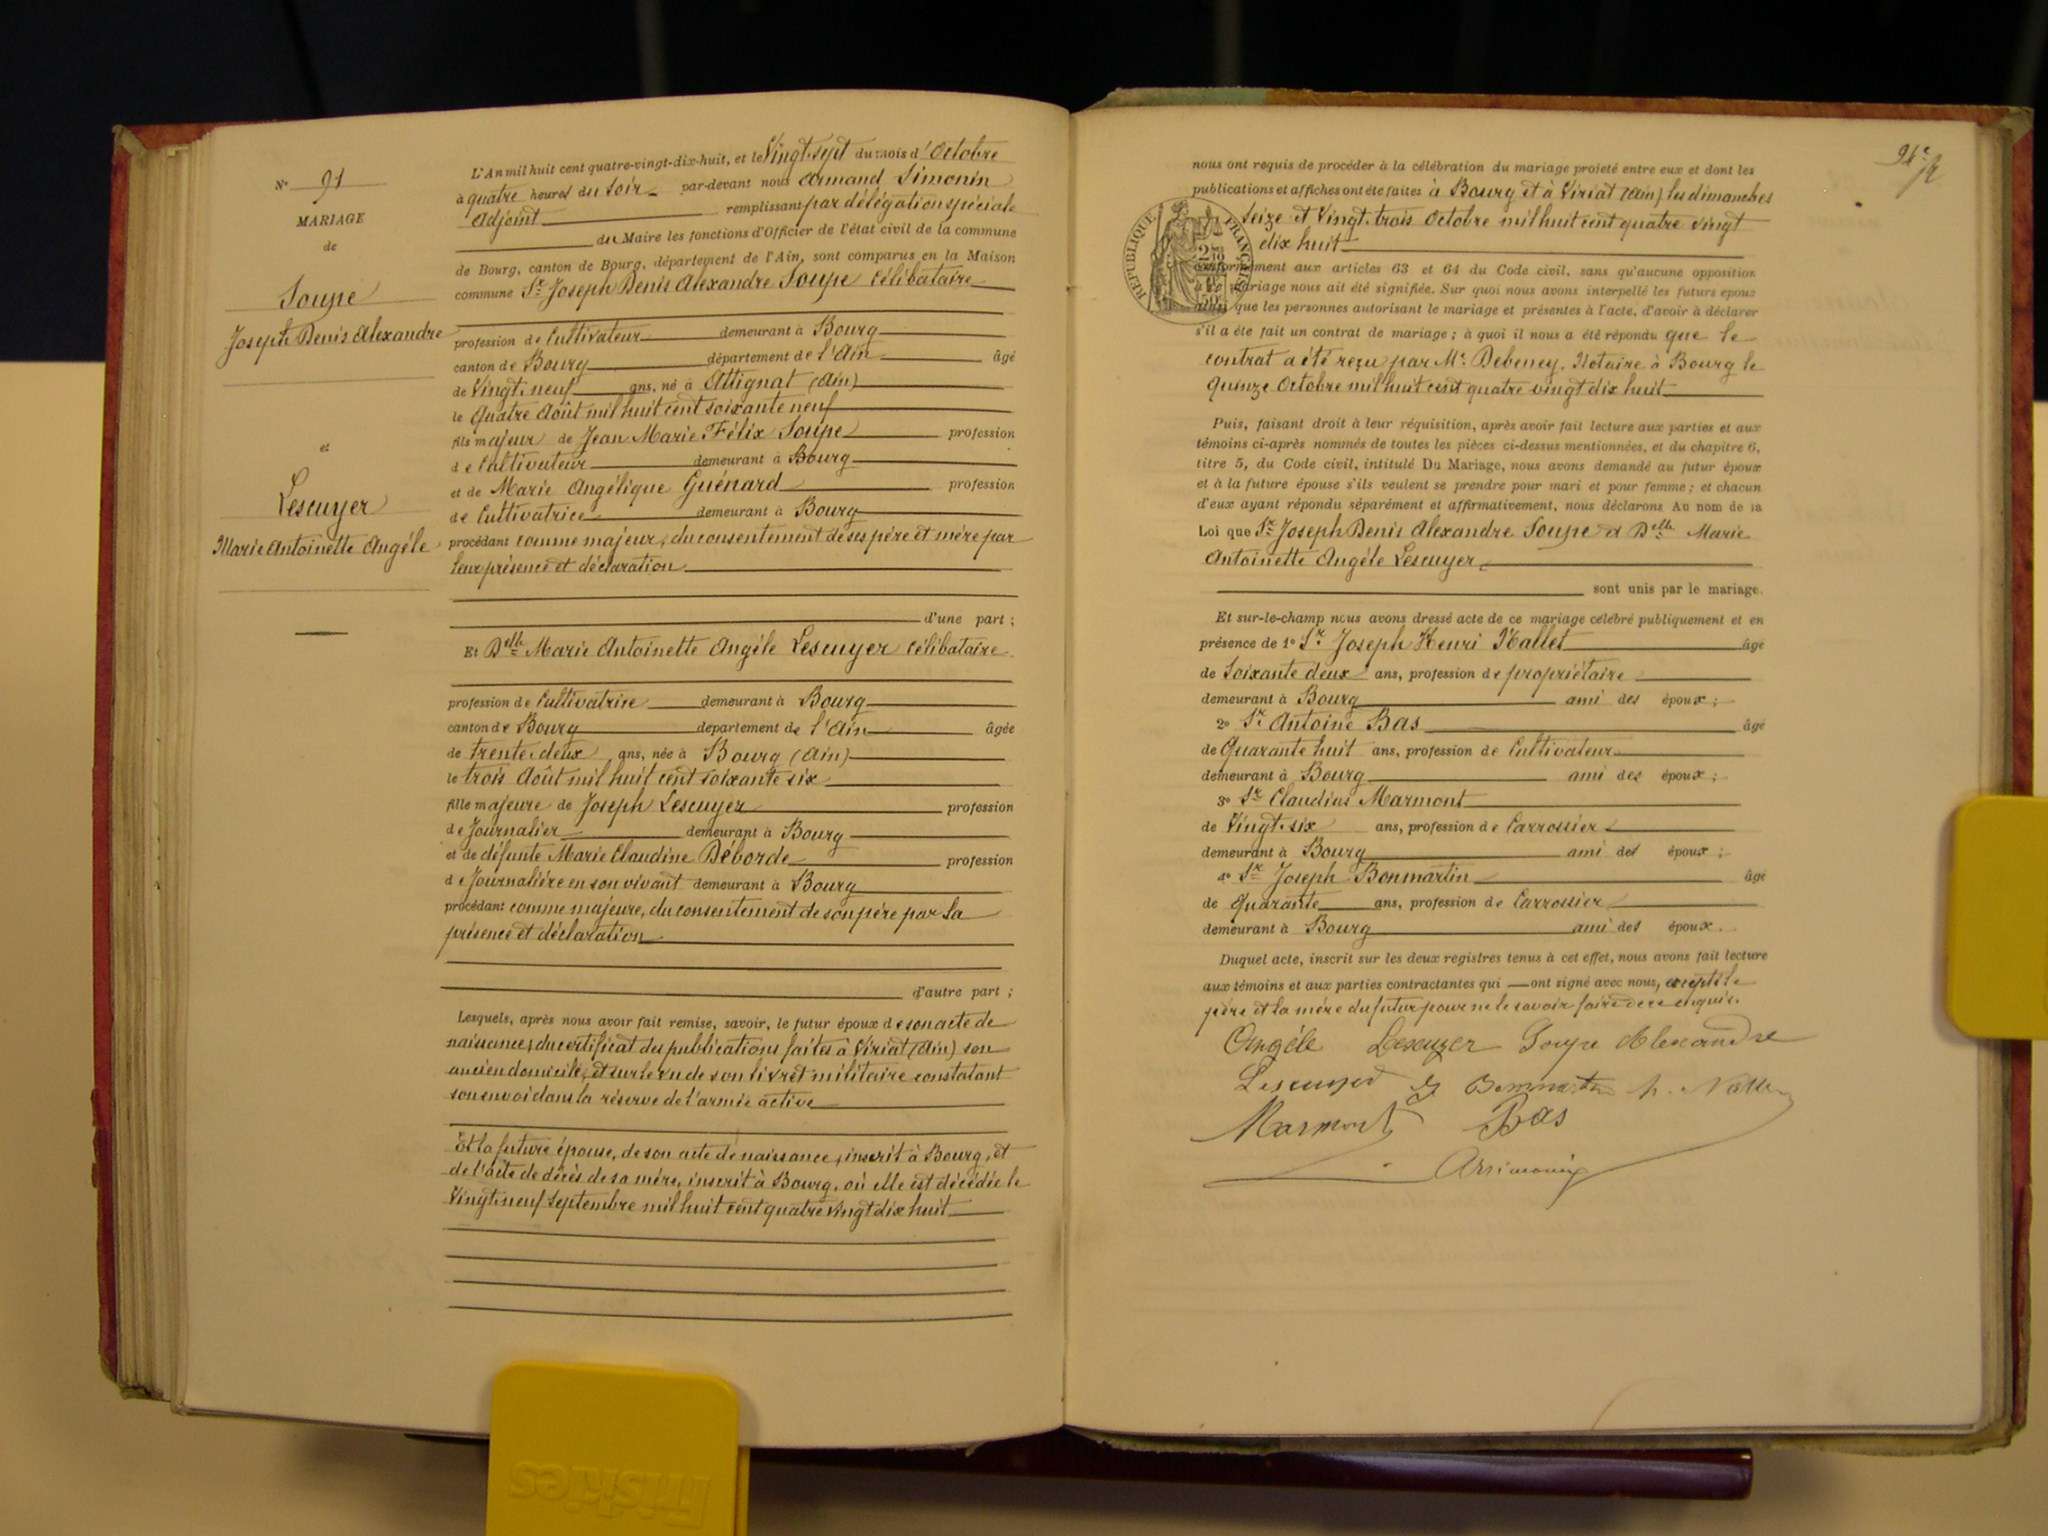 N° 91
MARIAGE
de
Soupe
Joseph Denis Alexandre
et
Lescuyer
Marie Antoinette Angèle
L'An mil huit cent quatre-vingt-dix-huit, et le Vingt-sept du mois d'Octobre
à quatre heures du Soir par-devant nous Armand Simonin
Adjoint remplissant par délégation spéciale
du Maire les fonctions d'Officier de l'état civil de la commune
de Bourg, canton de Bourg, département de l'Ain, sont comparus en la Maison
commune Sr Joseph Denis Alexandre Soupe Célibataire
profession de Cultivateur demeurant à Bourg
canton de Bourg département de l'Ain âgé
de Vingt-neuf ans, né à Attignat (Ain)
le Quatre Août mil huit cent soixante neuf
fils majeur de Jean Marie Félix Soupe profession
de Cultivateur demeurant à Bourg
et de Marie Angélique Guénard profession
de Cultivatrice demeurant à Bourg
procédant comme majeur, du consentement de ses père et mère par
leur présence et déclaration
d'une part ;
Et Delle Marie Antoinette Angèle Lescuyer Célibataire
profession de Cultivatrice demeurant à Bourg
canton de Bourg département de l'Ain âgée
de trente-deux ans, née à Bourg (Ain)
le trois Août mil huit cent soixante six
fille majeure de Joseph Lescuyer profession
de Journalier demeurant à Bourg
et de défunte Marie Claudine Déborde profession
de Journalière en son vivant demeurant à Bourg
procédant comme majeure, du consentement de son père par sa
présence et déclaration
d'autre part ;
Lesquels, après nous avoir fait remise, savoir, le futur époux de son acte de
naissance, du certificat des publications faites à Viriat (Ain) son
ancien domicile, et sur le vu de son livret militaire constatant
son envoi dans la réserve de l'armée active
Et la future épouse, de son acte de naissance, inscrit à Bourg, et
de l'acte de décès de sa mère, inscrit à Bourg, où elle est décédée le
Vingt-neuf Septembre mil huit cent quatre vingt dix huit
nous ont requis de procéder à la célébration du mariage projeté entre eux et dont les
publications et affiches ont été faites à Bourg et à Viriat (Ain) les dimanches
seize et Vingt-trois Octobre mil huit cent quatre vingt
dix huit
RÉPUBLIQUE FRANÇAISE
conformément aux articles 63 et 64 du Code civil, sans qu'aucune opposition
à ce mariage nous ait été signifiée. Sur quoi nous avons interpellé les futurs époux
ainsi que les personnes autorisant le mariage et présentes à l'acte, d'avoir à déclarer
s'il a été fait un contrat de mariage ; à quoi il nous a été répondu que le
contrat a été reçu par Me Debeney, Notaire à Bourg le
Quinze Octobre mil huit cent quatre vingt dix huit
Puis, faisant droit à leur réquisition, après avoir fait lecture aux parties et aux
témoins ci-après nommés de toutes les pièces ci-dessus mentionnées, et du chapitre 6,
titre 5, du Code civil, intitulé Du Mariage, nous avons demandé au futur époux
et à la future épouse s'ils veulent se prendre pour mari et pour femme ; et chacun
d'eux ayant répondu séparément et affirmativement, nous déclarons Au nom de la
Loi que Sr Joseph Denis Alexandre Soupe et Delle Marie
Antoinette Angèle Lescuyer
sont unis par le mariage.
Et sur-le-champ nous avons dressé acte de ce mariage célébré publiquement et en
présence de 1° Sr Joseph Henri Nallet âgé
de Soixante deux ans, profession de propriétaire
demeurant à Bourg ami des époux ;
2° Sr Antoine Bas âgé
de Quarante huit ans, profession de Cultivateur
demeurant à Bourg ami des époux ;
3° Sr Claudius Marmont
de Vingt-six ans, profession de Carrossier
demeurant à Bourg ami des époux ;
4° Sr Joseph Bonmartin âgé
de Quarante ans, profession de Carrossier
demeurant à Bourg ami des époux.
Duquel acte, inscrit sur les deux registres tenus à cet effet, nous avons fait lecture
aux témoins et aux parties contractantes qui ont signé avec nous, excepté le
père et la mère du futur pour ne le savoir faire de ce enquis.
Angèle Lescuyer Soupe Alexandre
Lescuyer J Bonmartin h. Nallet
Marmont Bas
Arsimonin
Friskies